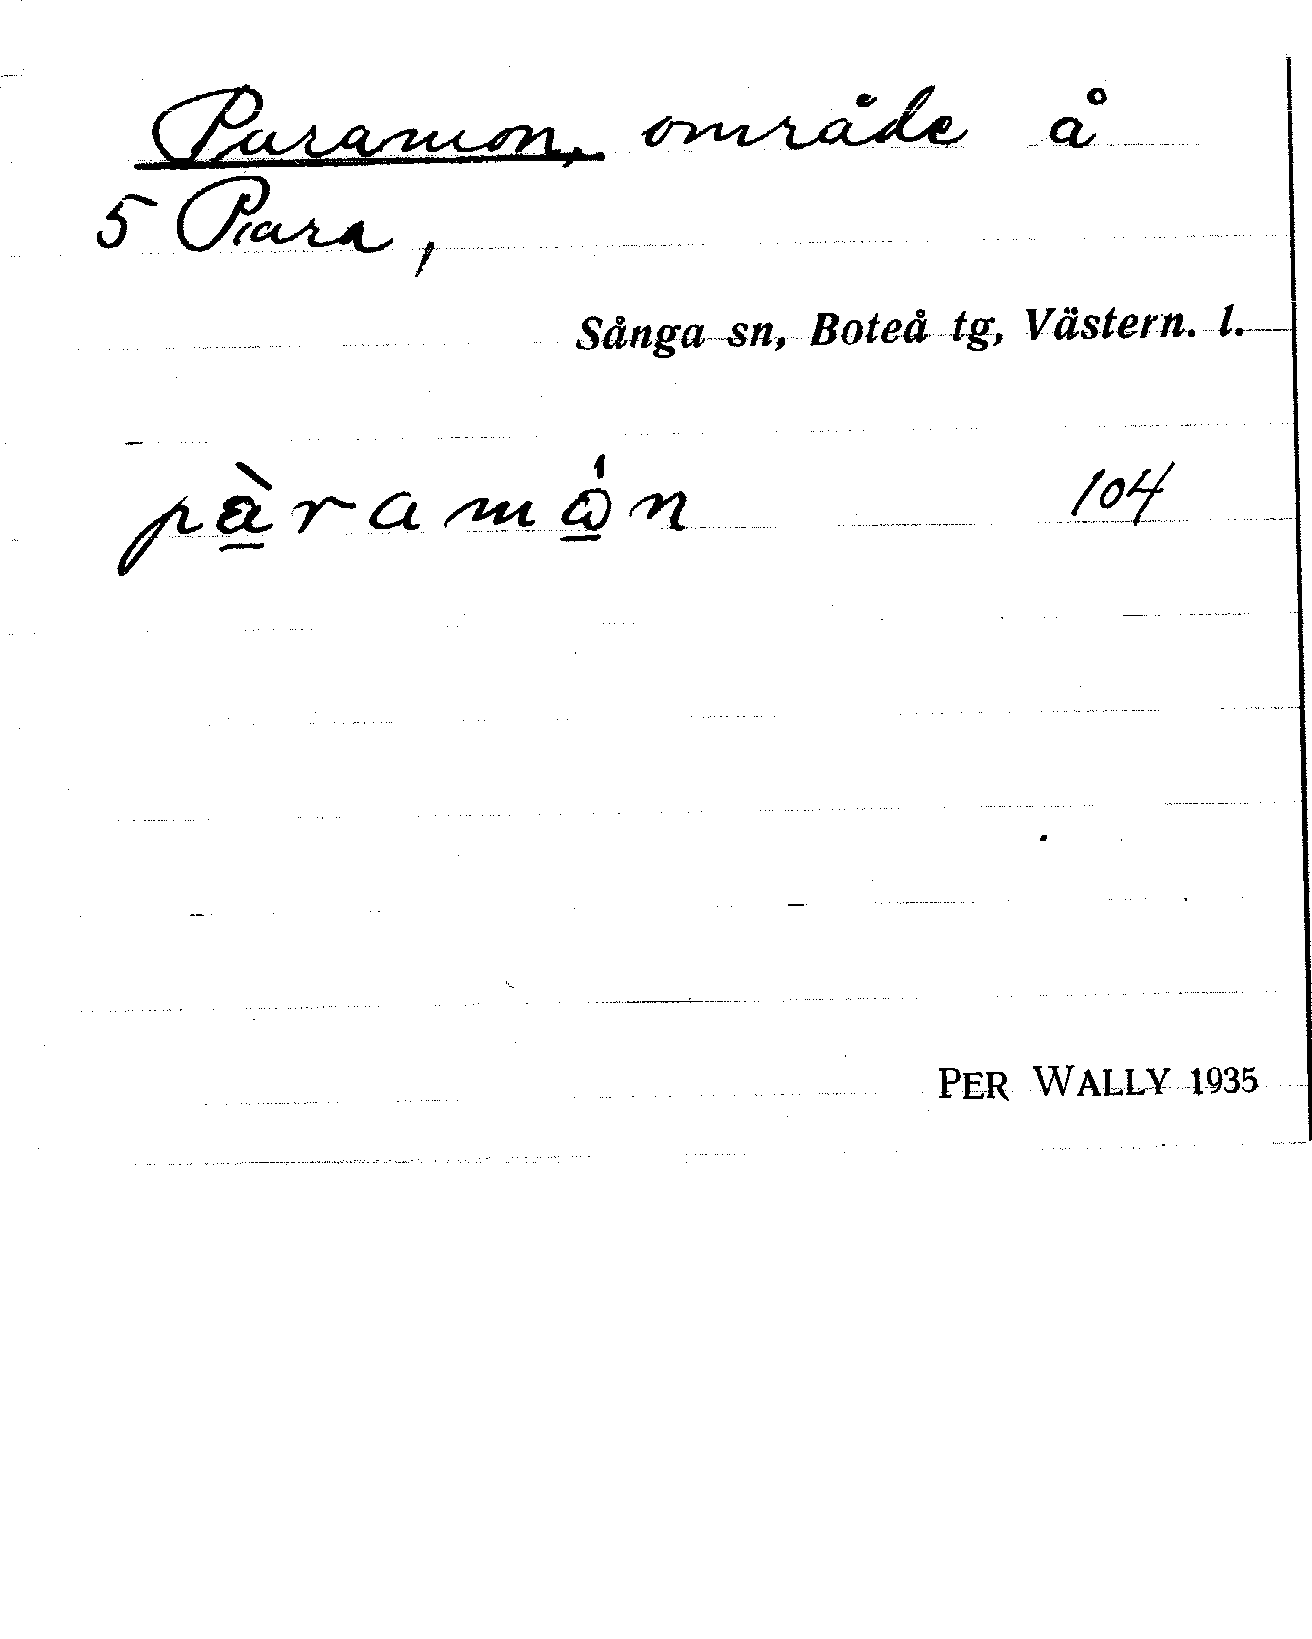 Paramon, område å
5 Para,
Sånga sn, Boteå tg, Västern. l.
pàramón 104
PER WALLY 1935